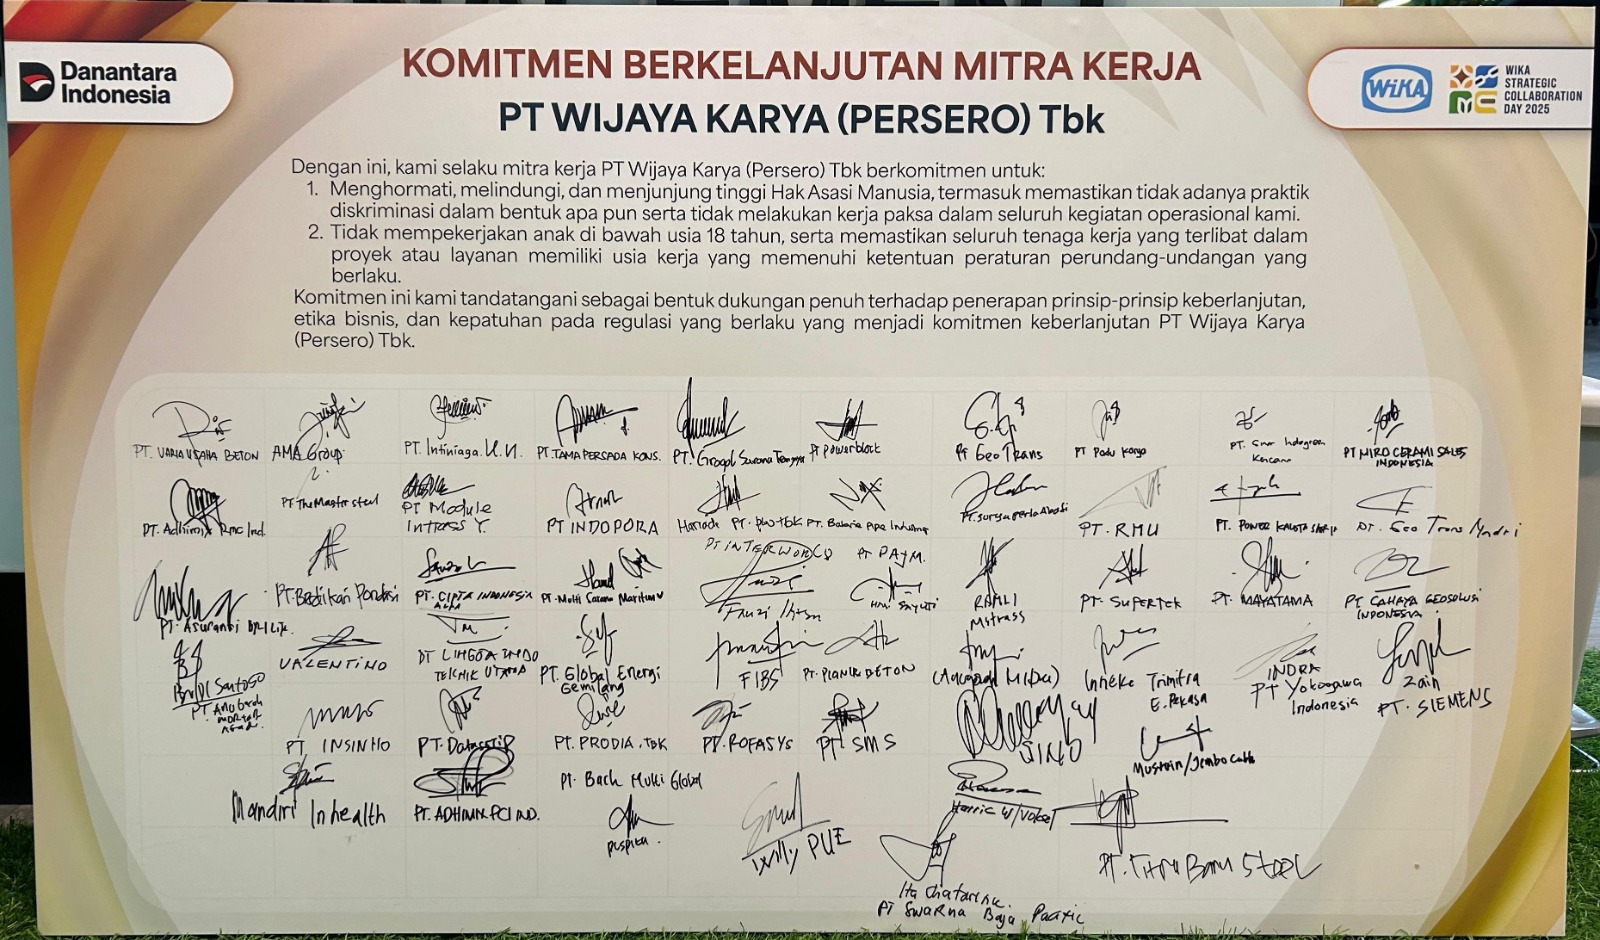 Danantara
Indonesia
KOMITMEN BERKELANJUTAN MITRA KERJA
PT WIJAYA KARYA (PERSERO) Tbk
WIKA
WIKA
STRATEGIC
COLLABORATION
DAY 2025
Dengan ini, kami selaku mitra kerja PT Wijaya Karya (Persero) Tbk berkomitmen untuk:
1. Menghormati, melindungi, dan menjunjung tinggi Hak Asasi Manusia, termasuk memastikan tidak adanya praktik
diskriminasi dalam bentuk apa pun serta tidak melakukan kerja paksa dalam seluruh kegiatan operasional kami.
2. Tidak mempekerjakan anak di bawah usia 18 tahun, serta memastikan seluruh tenaga kerja yang terlibat dalam
proyek atau layanan memiliki usia kerja yang memenuhi ketentuan peraturan perundang-undangan yang
berlaku.
Komitmen ini kami tandatangani sebagai bentuk dukungan penuh terhadap penerapan prinsip-prinsip keberlanjutan,
etika bisnis, dan kepatuhan pada regulasi yang berlaku yang menjadi komitmen keberlanjutan PT Wijaya Karya
(Persero) Tbk.
PT. VARIA USAHA BETON
AMA Group
PT. Intiniaga
PT. TAMA PERSADA KONS.
PT Powerblock
PT Geo Trans
PT Padu Karya
PT NIRO CERAMIC SALES
INDONESIA
PT. Adhimix Rmc Ind.
PT The Master Steel
PT Module
Intrass Y.
PT INDOPORA
PT. RMU
PT. Geo Trans Mandiri
PT INTERWORLD
PT. Asuransi BRI Life
PT. CIPTA INDONESIA
PT. Multi Sarana Maritim
RAMLI
Mitrass
PT. SUPERTEK
PT. MAYATAMA
PT CAHAYA GEOSOLUSI
INDONESIA
Budi Santoso
VALENTINO
PT LINGGA INDO
TEKNIK UTAMA
PT. Global Energi
Gemilang
FIBS
PT. PIONIR BETON
Inneke Trimitra
E. Pekasa
INDRA
PT Yokogawa
Indonesia
Zain
PT. SIEMENS
PT. INSINHO
PT. PRODIA. Tbk
PT. ROFASYS
PT. SMS
SINO
Mustain/Jembo Cable
Mandiri Inhealth
PT. ADHIMIX PCI IND.
PT. Bach Multi Global
puspita.
Willy PUE
PT. Baru STEEL
Ita Chatarina.
PT Swarna Baja Pacific